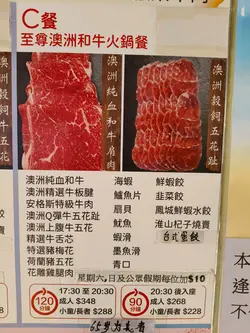 C餐
至尊澳洲和牛火鍋餐
澳洲穀飼牛五花
澳洲純血和牛肩肉
澳洲穀飼五花趾
澳洲純血和牛
澳洲精選牛板腱
安格斯特級牛肉
澳洲Q彈牛五花趾
澳洲上腹牛五花
精選牛舌芯
特選豬梅花
荷蘭黑豚肉
花雕雞腿肉
海蝦
鱸魚片
扇貝
魷魚
蝦滑
墨魚滑
青口
鮮蝦餃
韭菜餃
鳳城鮮蝦水餃
淮山杞子燒賣
台式蛋餃
星期六,日及公眾假期每位加$10
120分鐘
17:30 至 20:30
成人 $348
小童/長者 $288
90分鐘
20:30 後入座
成人 $288
小童/長者 $268
65岁为長者